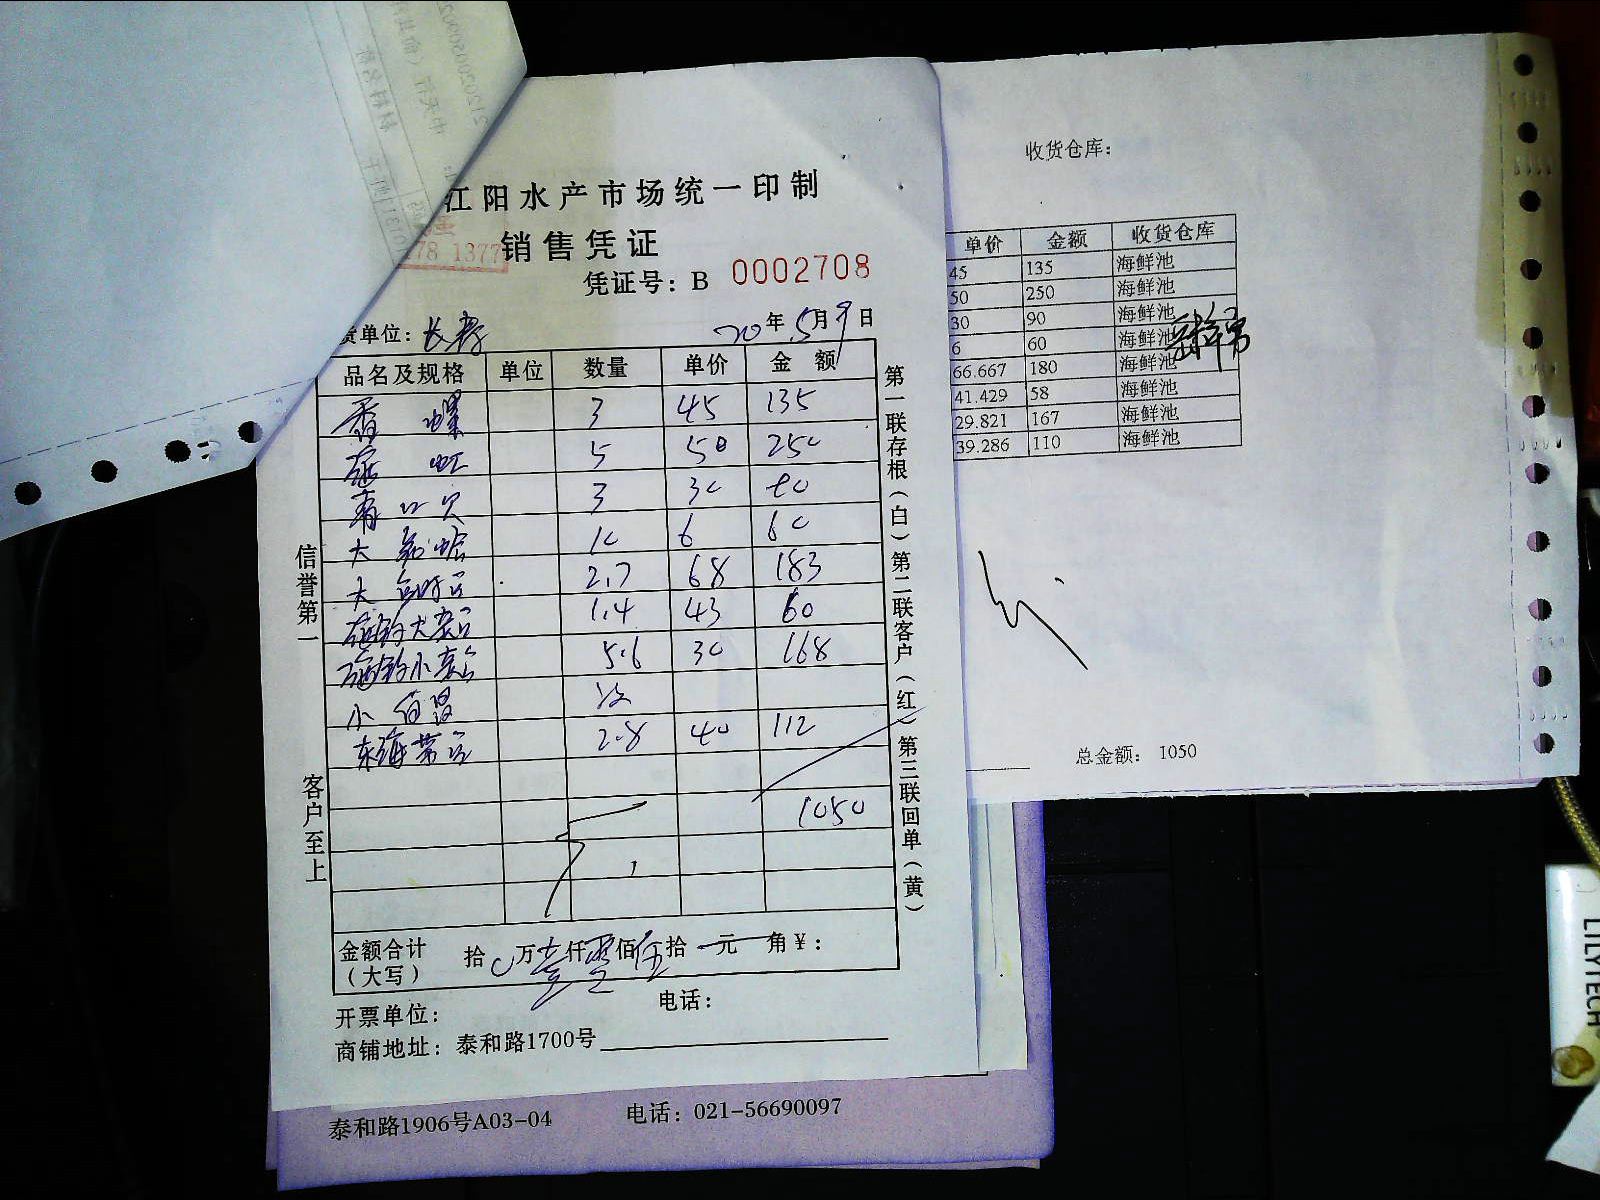 江阳水产市场统一印制
销售凭证
78 1377
凭证号：B 0002708
货单位：长寿
20年5月9日
品名及规格 单位 数量 单价 金 额
香 螺 3 45 135
花 虹 5 50 250
青口贝 3 30 90
大 蛤 10 6 60
大 2.7 68 183
1.4 43 60
5.6 30 168
小 没
东海带 2.8 40 112
1050
金额合计（大写） 拾0万壹仟零佰伍拾一元 角￥：
开票单位：
电话：
商铺地址：泰和路1700号
信誉第一
客户至上
第一联存根（白）第二联客户（红）第三联回单（黄）
泰和路1906号A03-04
电话：021-56690097
收货仓库：
单价 金额 收货仓库
45 135 海鲜池
50 250 海鲜池
30 90 海鲜池
6 60 海鲜池
66.667 180 海鲜池
41.429 58 海鲜池
29.821 167 海鲜池
39.286 110 海鲜池
总金额： 1050
LILYTECH